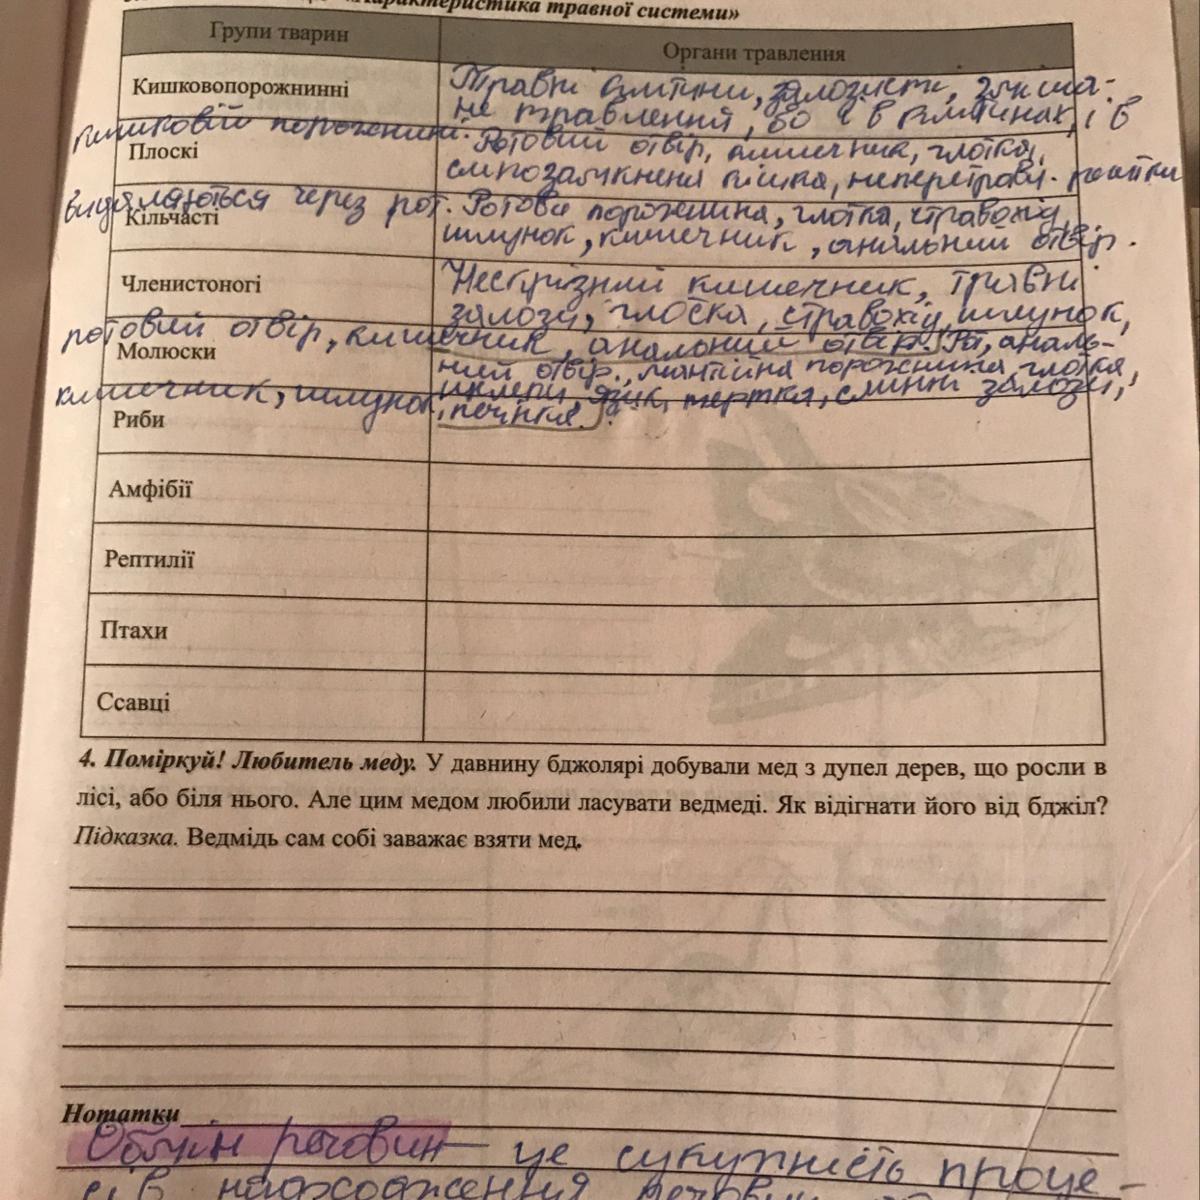 «Характеристика травної системи»
Групи тварин
Органи травлення
Кишковопорожнинні
Травні клітини, залозисті, змiша-
не травлення, бо і в клітинах, і в
кишковій порожнині.
Плоскі
Ротовий отвір, кишечник, глотка,
сліпозамкнена кишка, неперетравл. рештки
видаляються через рот.
Кільчасті
Ротова порожнина, глотка, стравохід,
шлунок, кишечник, анальний отвір.
Членистоногі
Нескрізний кишечник, травні
залози, глотка, стравохід, шлунок,
ротовий отвір, кишечник, анальний отвір.
Молюски
Рот, аналь-
ний отвір, мантійна порожнина, глотка,
щелепи, язик, тертка, слинні залози,
кишечник, шлунок, печінка.
Риби
Амфібії
Рептилії
Птахи
Ссавці
4. Поміркуй! Любитель меду. У давнину бджолярі добували мед з дупел дерев, що росли в
лісі, або біля нього. Але цим медом любили ласувати ведмеді. Як відігнати його від бджіл?
Підказка. Ведмідь сам собі заважає взяти мед.
Нотатки
Обмін речовин — це сукупність проце-
сів надходження речовин